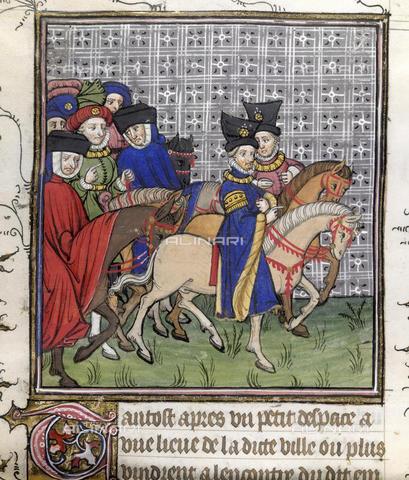 ALINARI
ALINARI
Tantost apres vn petit despace a
vne lieue de la dicte ville ou plus
vindrent a lencontre du dit em